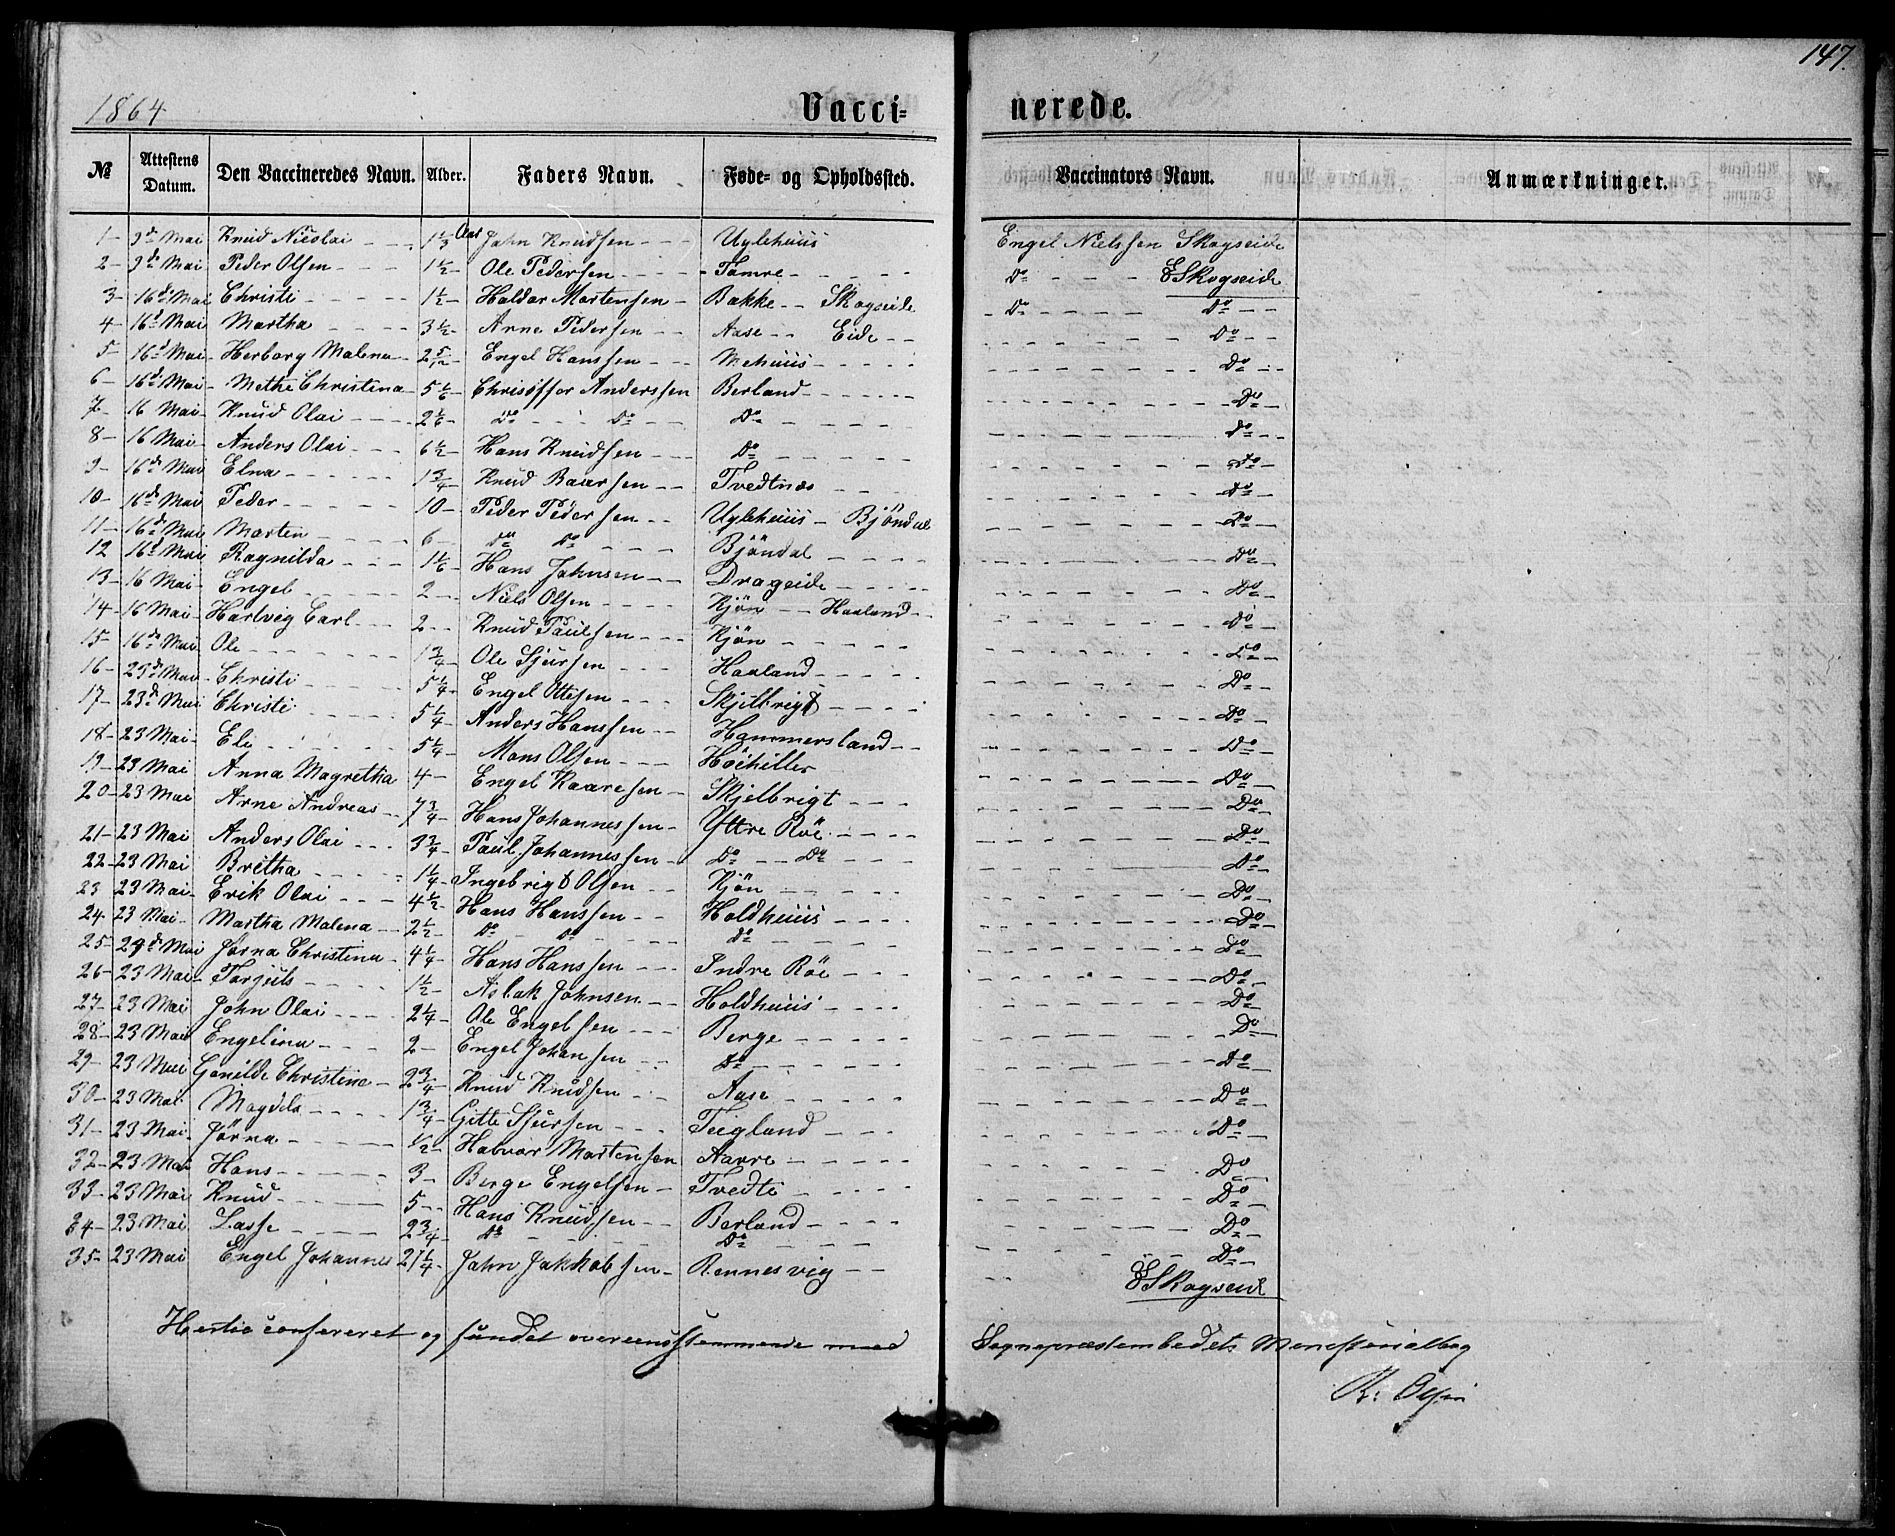 147.
1864
Vacci= nerede.
№ | Attestens Datum. | Den Vaccineredes Navn. | Alder. | Faders Navn. | Føde- og Opholdssted. | Vaccinators Navn. | Anmærkninger.
1 - 9de Mai Knud Nicolai - - 1 1/3 Aar John Knudsen - - - Uglehuus Engel Nielssen Skogseide
2 - 9de Mai Peder Olsen - - - 1 1/2 - Ole Pedersen - - - Tømre - - - Do - - - ESkogseide
3 - 16de Mai Christi - - - 1 1/2 - Haldor Mortensen - Bakke - - Skogseide - Do - - - Do - -
4 - 16de Mai Martha - - - 3 1/2 - Arne Pedersen - - Aase - - Eide - - Do - -
5 - 16de Mai Herborg Malena - 2 5/12 - Engel Hanssen - - Mehuus - - - Do - -
6 - 16de Mai - Methe Christena - 5 1/6 - Chrisoffor Anderssen Berland - - - Do -
7 - 16 Mai - Knud Olai - - - 2 1/6 - Do - - - Do - - Do - - - Do - -
8 - 16 Mai - Anders Olai - - 6 1/2 - Hans Knudsen - - - Do - - - Do -
9 - 16de Mai Elna - - - 1 3/4 - Knud Baarsen - - Tvedtnæs - - Do -
10 - 16de Mai Peder - - - 10 - Peder Pedersen - - Uglehuus - Bjöndal Do -
11 - 16de Mai Morten - - - 6 - Do Do - - - Bjöndal - - - Do -
12 16de Mai Ragnilda - - - 1 1/6 - Hans Johnsen - - Drageide - - - Do -
13 - 16 Mai - Engel - - - 2 - - Niels Olsen - - - Kjön - - Haaland - Do -
14 - 16 Mai - Hartvig Carl - - 2 - - Knud Paulsen - - - Kjön - - - Do -
15 - 16de Mai Ole - - - 1 3/4 - Ole Sjursen - - - Haaland - - - Do -
16 - 23de Mai - Christi - - - 5 1/4 - Engel Ottesen - - - Skjelbrigt - - - Do -
17 - 23de Mai Christi - - - 5 1/4 - Anders Hanssen - - Hammersland - - Do -
18 - 23 Mai - Eli - - - 5 1/4 - Mons Olsen - - - Höiehiller Do -
19 - 23 Mai Anna Magretha 4 - Engel Kaaresen - Skjelbrigt - - - Do -
20 - 23 Mai Arne Andreas - - 7 3/4 - Hans Johannessen - Yttre Röe - - - Do -
21 - 23 Mai Anders Olai - - - 3 3/4 - Paul Johannessen - Do - - Do - - - Do -
22 - 23 Mai Bretha - - - 1 1/4 - Ingebrigt Olsen - - Kjön - - - Do -
23 23 Mai - Erik Olai - - - 4 1/2 - Hans Hanssen - - Holdhuus - - - Do -
24 - 23 Mai - Martha Malena - - 2 1/2 - Do - Do - - - Do - - - Do -
25 - 24de Mai Jørna Christena - 4 1/4 - Hans Hanssen - - Indre Röe - - - Do -
26 - 23 Mai - Torjuls - - - 1 1/2 - Aslak Johnsen - - Holdhuus - - - Do -
27 - 23 Mai John Olai - - - 2 1/4 - Ole Engelsen - - - Berge - - - Do -
28 - 23 Mai Engelina - - - 2 - Engel Johansen - - Do - - - Do -
29 - 23 Mai Gonilde Christine - 2 3/4 - Knud Knudsen - - Aase - - - Do -
30 - 23 Mai Magdela - - - 1 3/4 - Gitte Sjursen - - - Teigland - - - Do -
31 - 23 Mai - Jørna - - - 1/2 - Halvor Mortensen Aarre - - - Do -
32 - 23 Mai Hans - - - 3 - Berge Engelsen - Tvedte - - - Do
33 - 23 Mai Knud - - - 5 - - Hans Knudsen - - Berland - - - Do -
34 - 23 Mai Lasse - - - 2 3/4 - Do - - - Do - - - Do -
35 - 23 Mai Engel Johannes 21 1/4 - John Jakkobsen - Rennesvig - - Do -
ESkogseid
Hertil confereret og fundet overeensstemmende med Sognepræstembedets Menesterialbog
R. Olsen